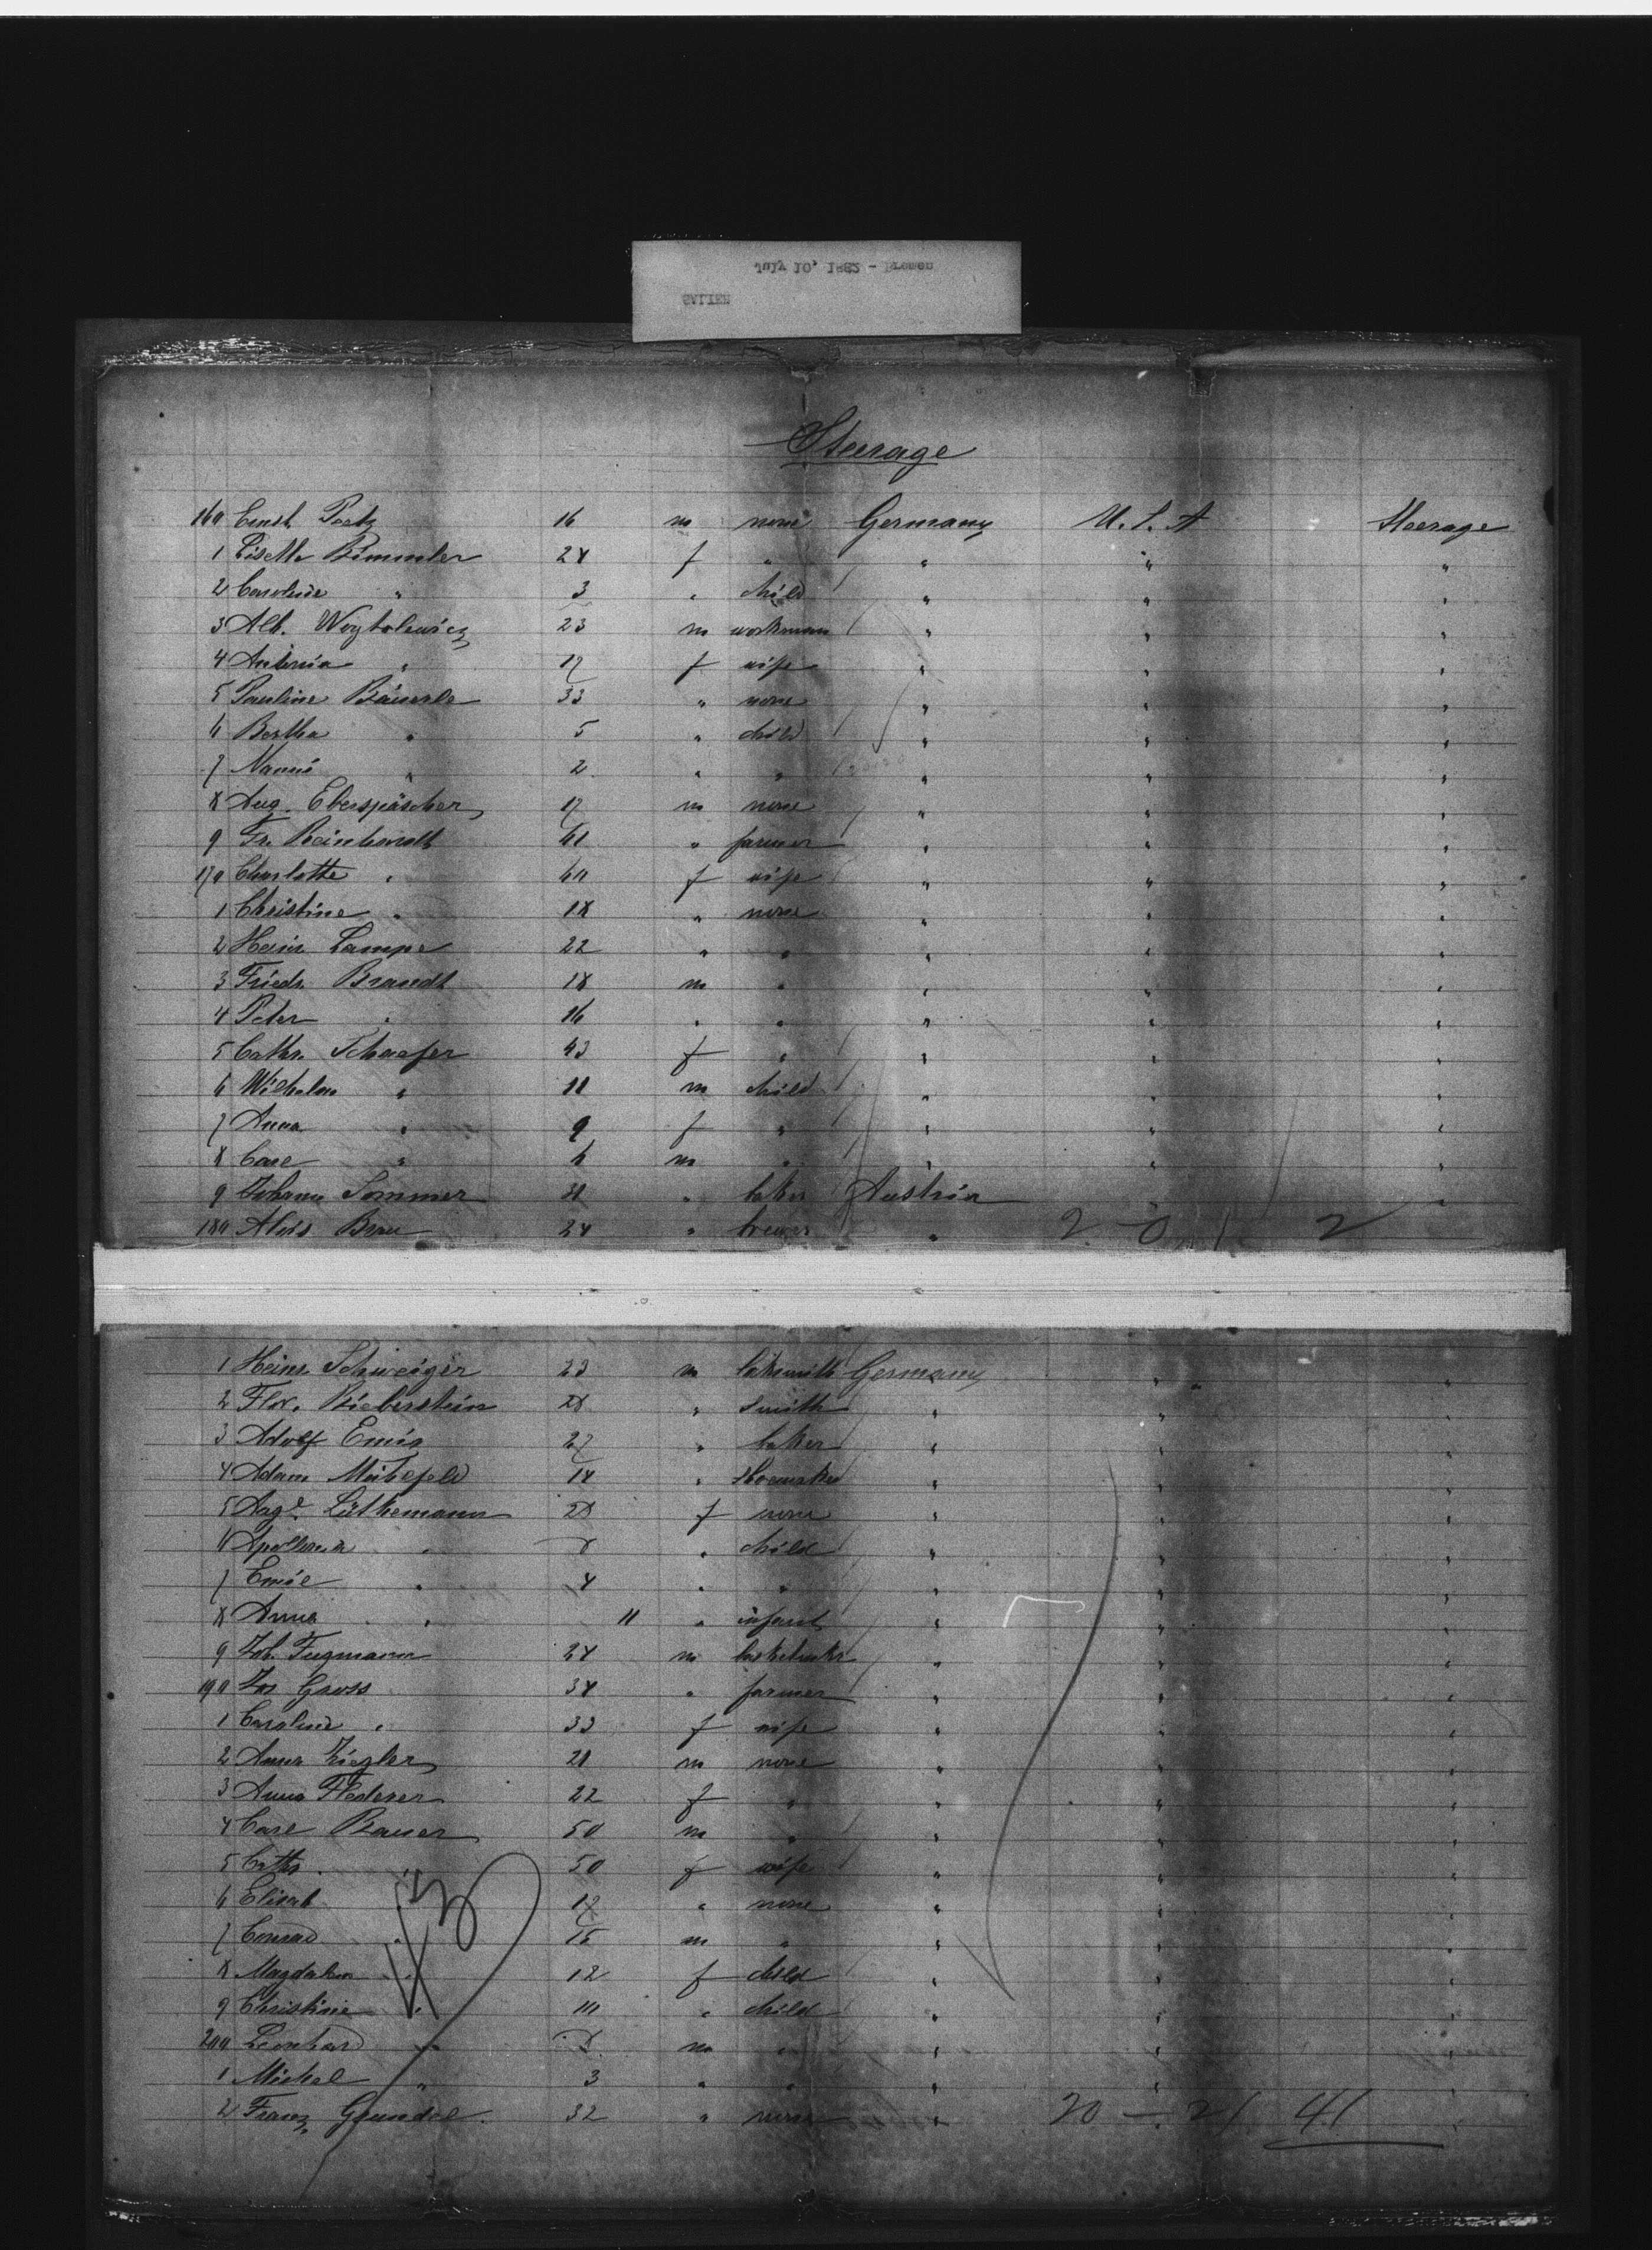 July 10, 1882 - Bremen
SALIER
Steerage
160 Ernst 16 m none Germany U.S.A Steerage
1 Bimmler 24 f " " " "
2 Caroline " 3 " child " " "
3 Alb. Woytolewicz 23 m workman " " "
4 Antonia " 17 f wife " " "
5 Pauline Bäuerle 33 " none " " "
6 Bertha " 5 " child " " "
7 Nanni " 2 " " " " "
8 Aug. Eberspächer 17 m none " " "
9 Fr. Reinhardt 61 " farmer " " "
170 Charlotte " 60 f wife " " "
1 Christine " 18 " none " " "
2 Heinr. Lampe 22 " " " " "
3 Friedr. Brandt 18 m " " " "
4 Peter " 16 " " " " "
5 Cathr. Schaefer 43 f " " " "
6 Wilhelm " 11 m child " " "
7 Anna " 9 f " " " "
8 Carl " 6 m " " " "
9 Johann Sommer 31 " baker Austria "
180 Alois 24 " brewer " 2 - 0 2
1 Heinr. Schweiger 23 m locksmith Germany " "
2 Flor. Bieberstein 28 " smith " " "
3 Adolf 27 " baker " " "
4 Adam 14 " shoemaker " " "
5 Lüthemann 28 f none " " "
6 Apollonia " 8 " child " " "
7 Emil " 4 " " " " "
8 Anna " 11 " infant " " "
9 Joh. Fugmann 24 m " " "
190 Jos Gross 34 " farmer " " "
1 Caroline " 33 f wife " " "
2 Anna Ziegler 21 m none " " "
3 Anna Flederer 22 f " " " "
4 Carl Bauer 50 m " " " "
5 Cathr. " 50 f wife " " "
6 Elisab " 17 " none " " "
7 Conrad " 15 m " " " "
8 Magdalen " 12 f child " " "
9 Christine " 10 " child " " "
200 Leonhard " 8 m " " " "
1 Michel " 3 " " " " "
2 Franz Grundel 32 " none " 20 - 21 41